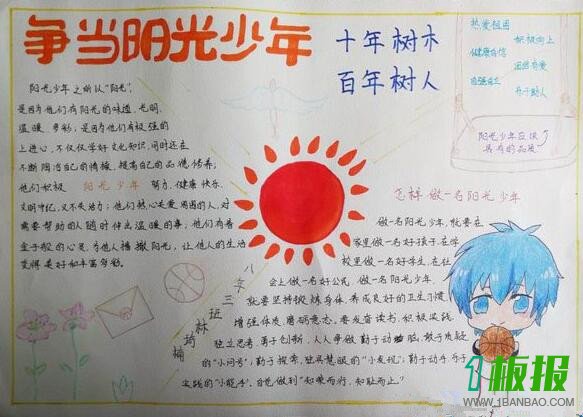 争当阳光少年
十年树木
百年树人
热爱祖国
积极向上
健康自信
团结友爱
自强自立
乐于助人
阳光少年应该
具有的品质
阳光少年之所以“阳光”,
是因为他们有阳光的味道,光明,
温暖,多彩;是因为他们有极强的
上进心,不仅仅学好文化知识,同时还在
不断陶冶自己的情操,提高自己的品德修养;
他们积极 阳光少年 努力,健康快乐,
文明守纪,又不失活力;他们热心关爱周围的人,对
需要帮助的人随时伸出温暖的手,他们有着
金子般的心灵,为他人播撒阳光,让他人的生活
变得美好和丰富多彩。
怎样做一名阳光少年
做一名阳光少年,就要在
家里做一名好孩子,在学
校里做一名好学生,在社
会上做一名好公民。做一名阳光少年,
就要坚持锻炼身体,养成良好的卫生习惯,
增强体质,磨砺意志;要发奋读书,积极实践,
独立思考,勇于创新,人人争做勤于动脑,敢于质疑
的“小问号”;勤于探索,独具慧眼的“小发现”;勤于动手,乐于
实践的“小能手”,自觉做到“知荣而行,知耻而止。”
三班
林琦楠
1板报
WWW.1BANBAO.COM